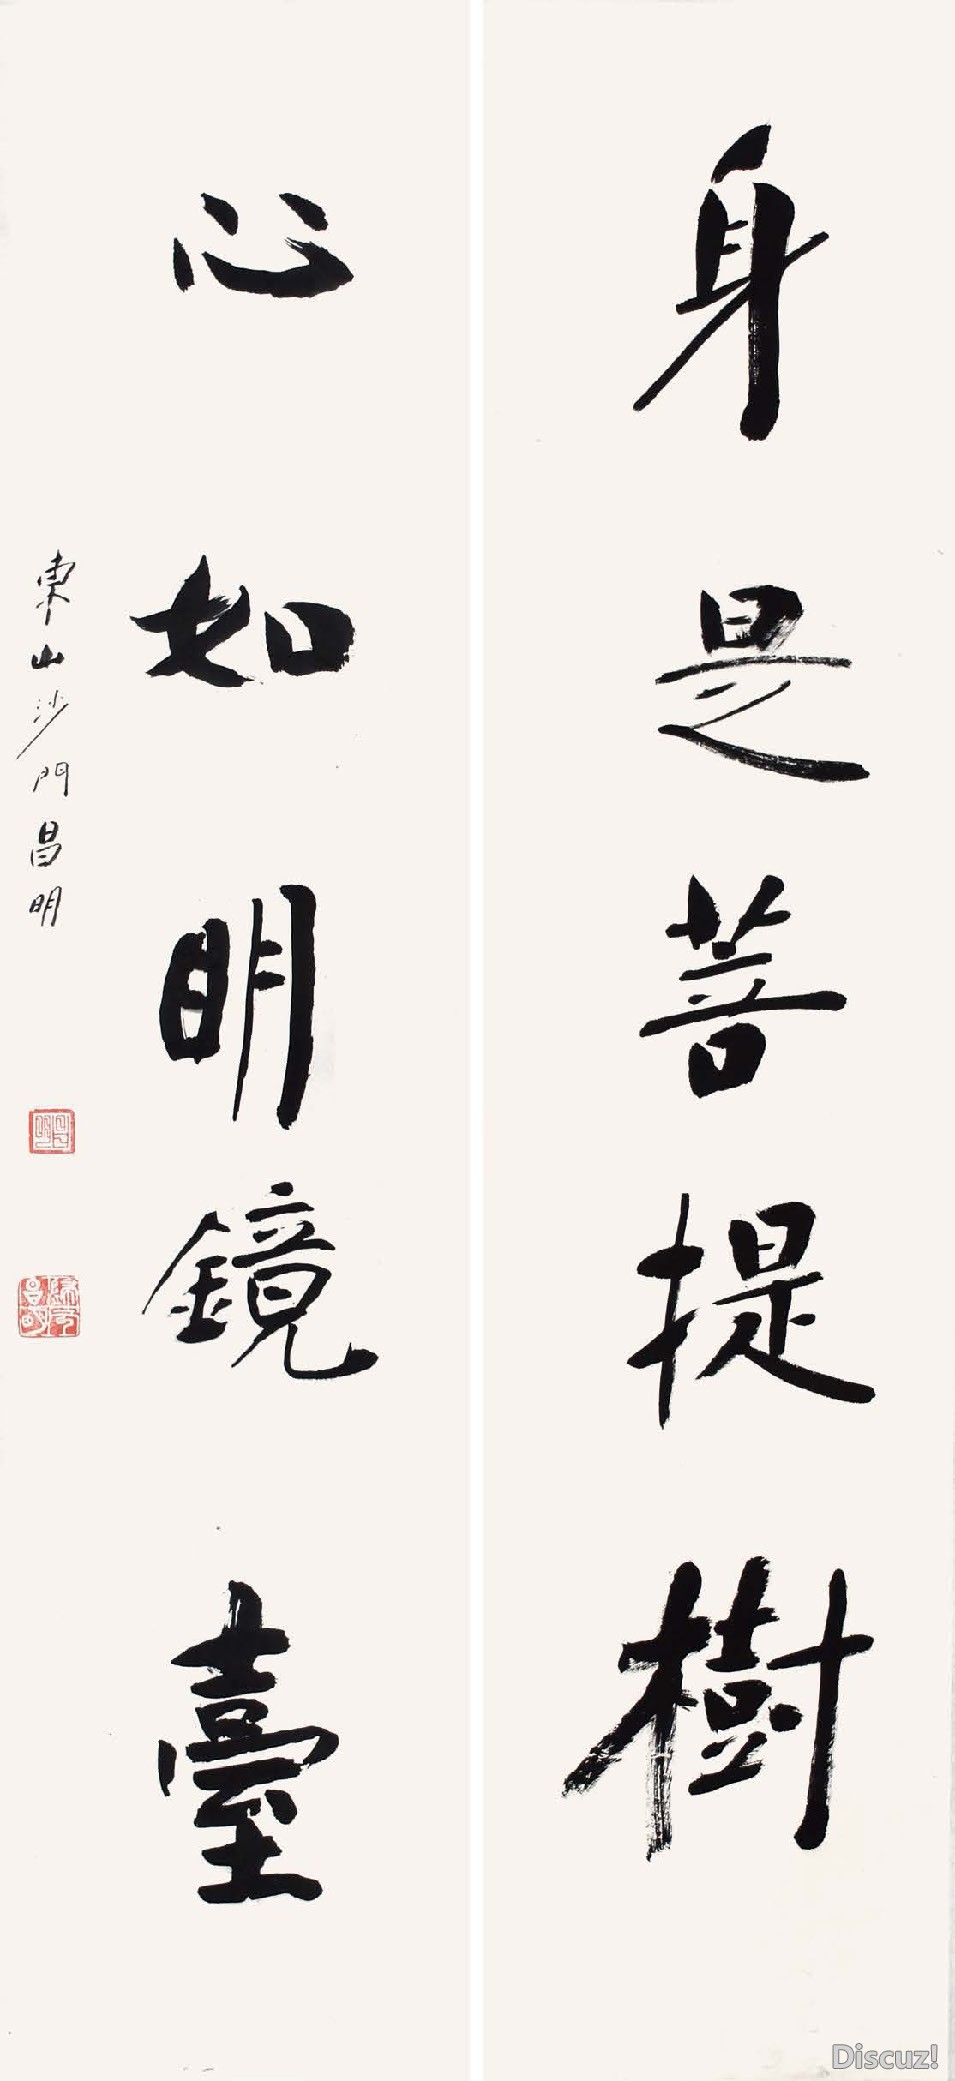 身是菩提樹
心如明鏡臺
東山沙門昌明
Discuz!